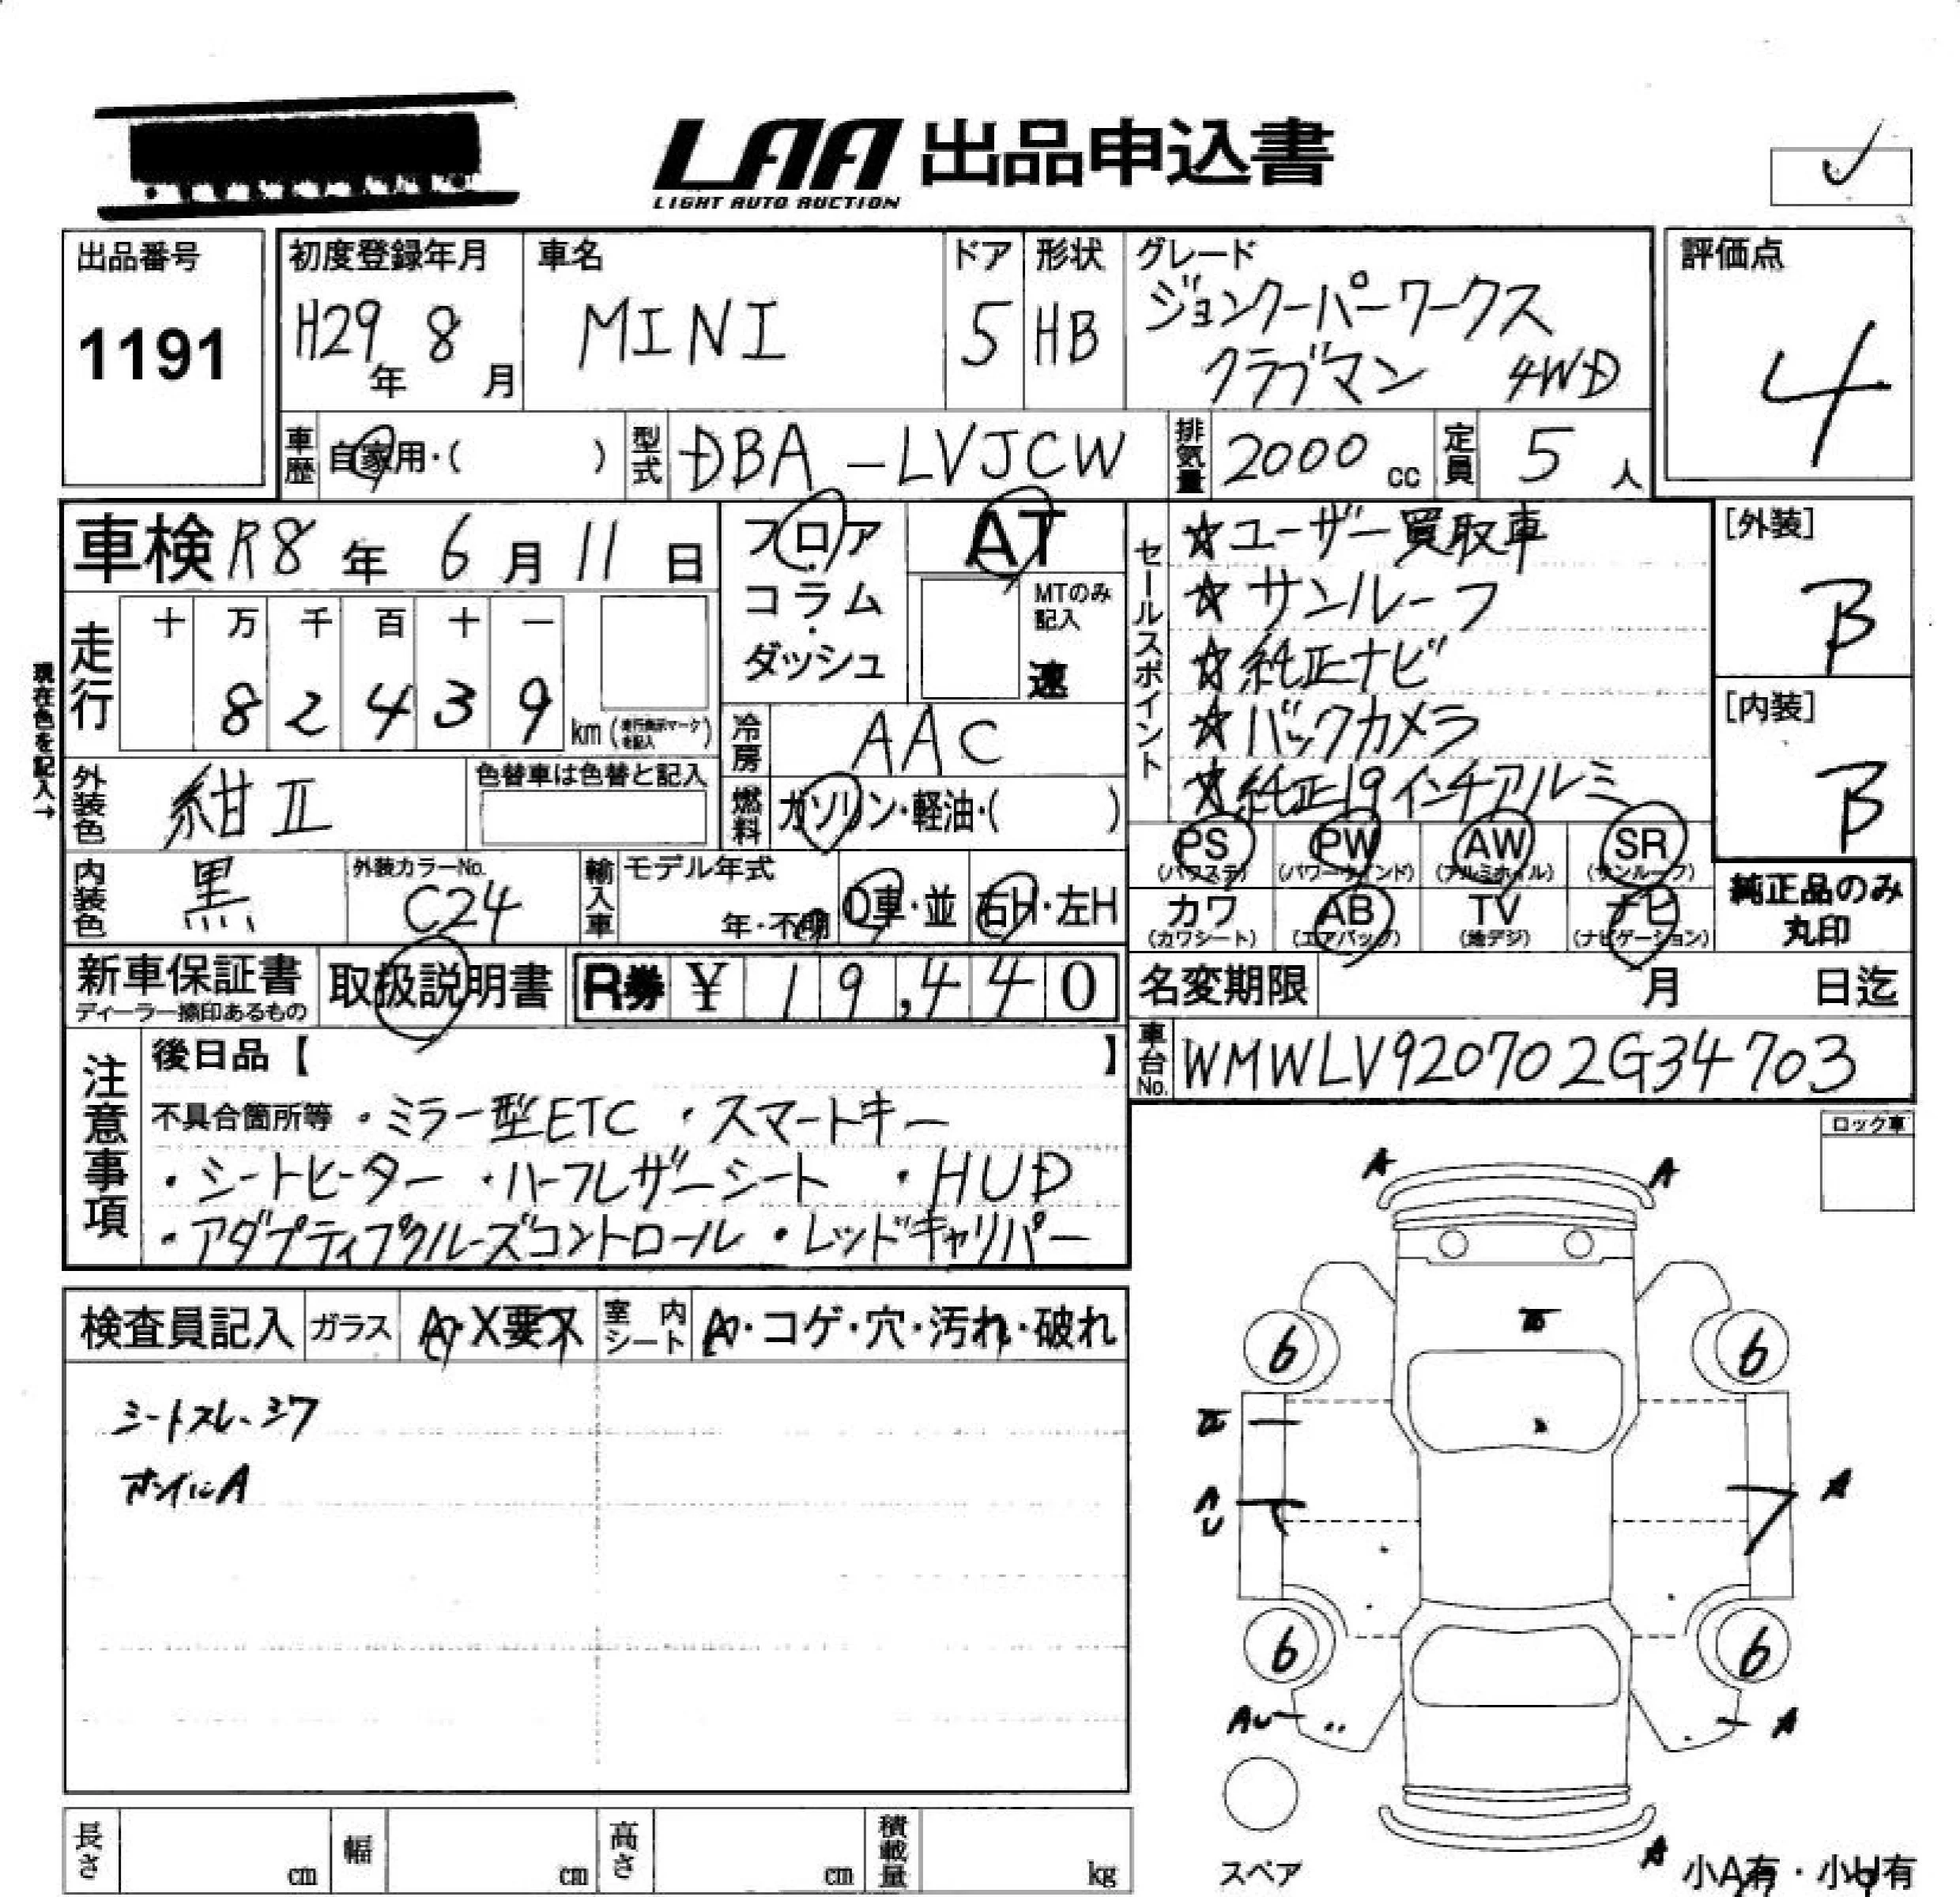 LAA 出品申込書
LIGHT AUTO AUCTION
出品番号
1191
初度登録年月
H29年 8月
車名
MINI
ドア
5
形状
HB
グレード
ジョンクーパーワークス
クラブマン 4WD
評価点
4
車歴 自家用・( )
型式 DBA-LVJCW
排気量 2000 cc
定員 5 人
車検 R8年 6月 11日
フロア・コラム・ダッシュ
AT
MTのみ記入
速
セールスポイント
☆ユーザー買取車
☆サンルーフ
☆純正ナビ
☆バックカメラ
☆純正19インチアルミ
[外装]
B
[内装]
B
現在色を記入→
走行
十 万 千 百 十 一
8 2 4 3 9 km
冷房 AAC
外装色 紺Ⅱ
色替車は色替と記入
燃料 ガソリン・軽油・( )
内装色 黒
外装カラーNo.
C24
輸入車
モデル年式
年・不明
D車・並
右H・左H
PS (パワステ)
PW (パワーウインド)
AW (アルミホイル)
SR (サンルーフ)
カワ (カワシート)
AB (エアバッグ)
TV (地デジ)
ナビ (ナビゲーション)
純正品のみ
丸印
新車保証書
ディーラー捺印あるもの
取扱説明書
R券 ¥ 19,440
名変期限 月 日迄
車台No. WMWLV920702G34703
注意事項
後日品【 】
不具合箇所等 ・ミラー型ETC ・スマートキー
・シートヒーター ・ハーフレザーシート ・HUD
・アダプティブクルーズコントロール ・レッドキャリパー
ロック車
検査員記入
ガラス A・X要ス
室内シート A・コゲ・穴・汚れ・破れ
シートスレ、シワ
A A
6 6
A
A
U
A
6 6
AU A
スペア
A
小A有・小U有
長さ cm
幅 cm
高さ cm
積載量 kg